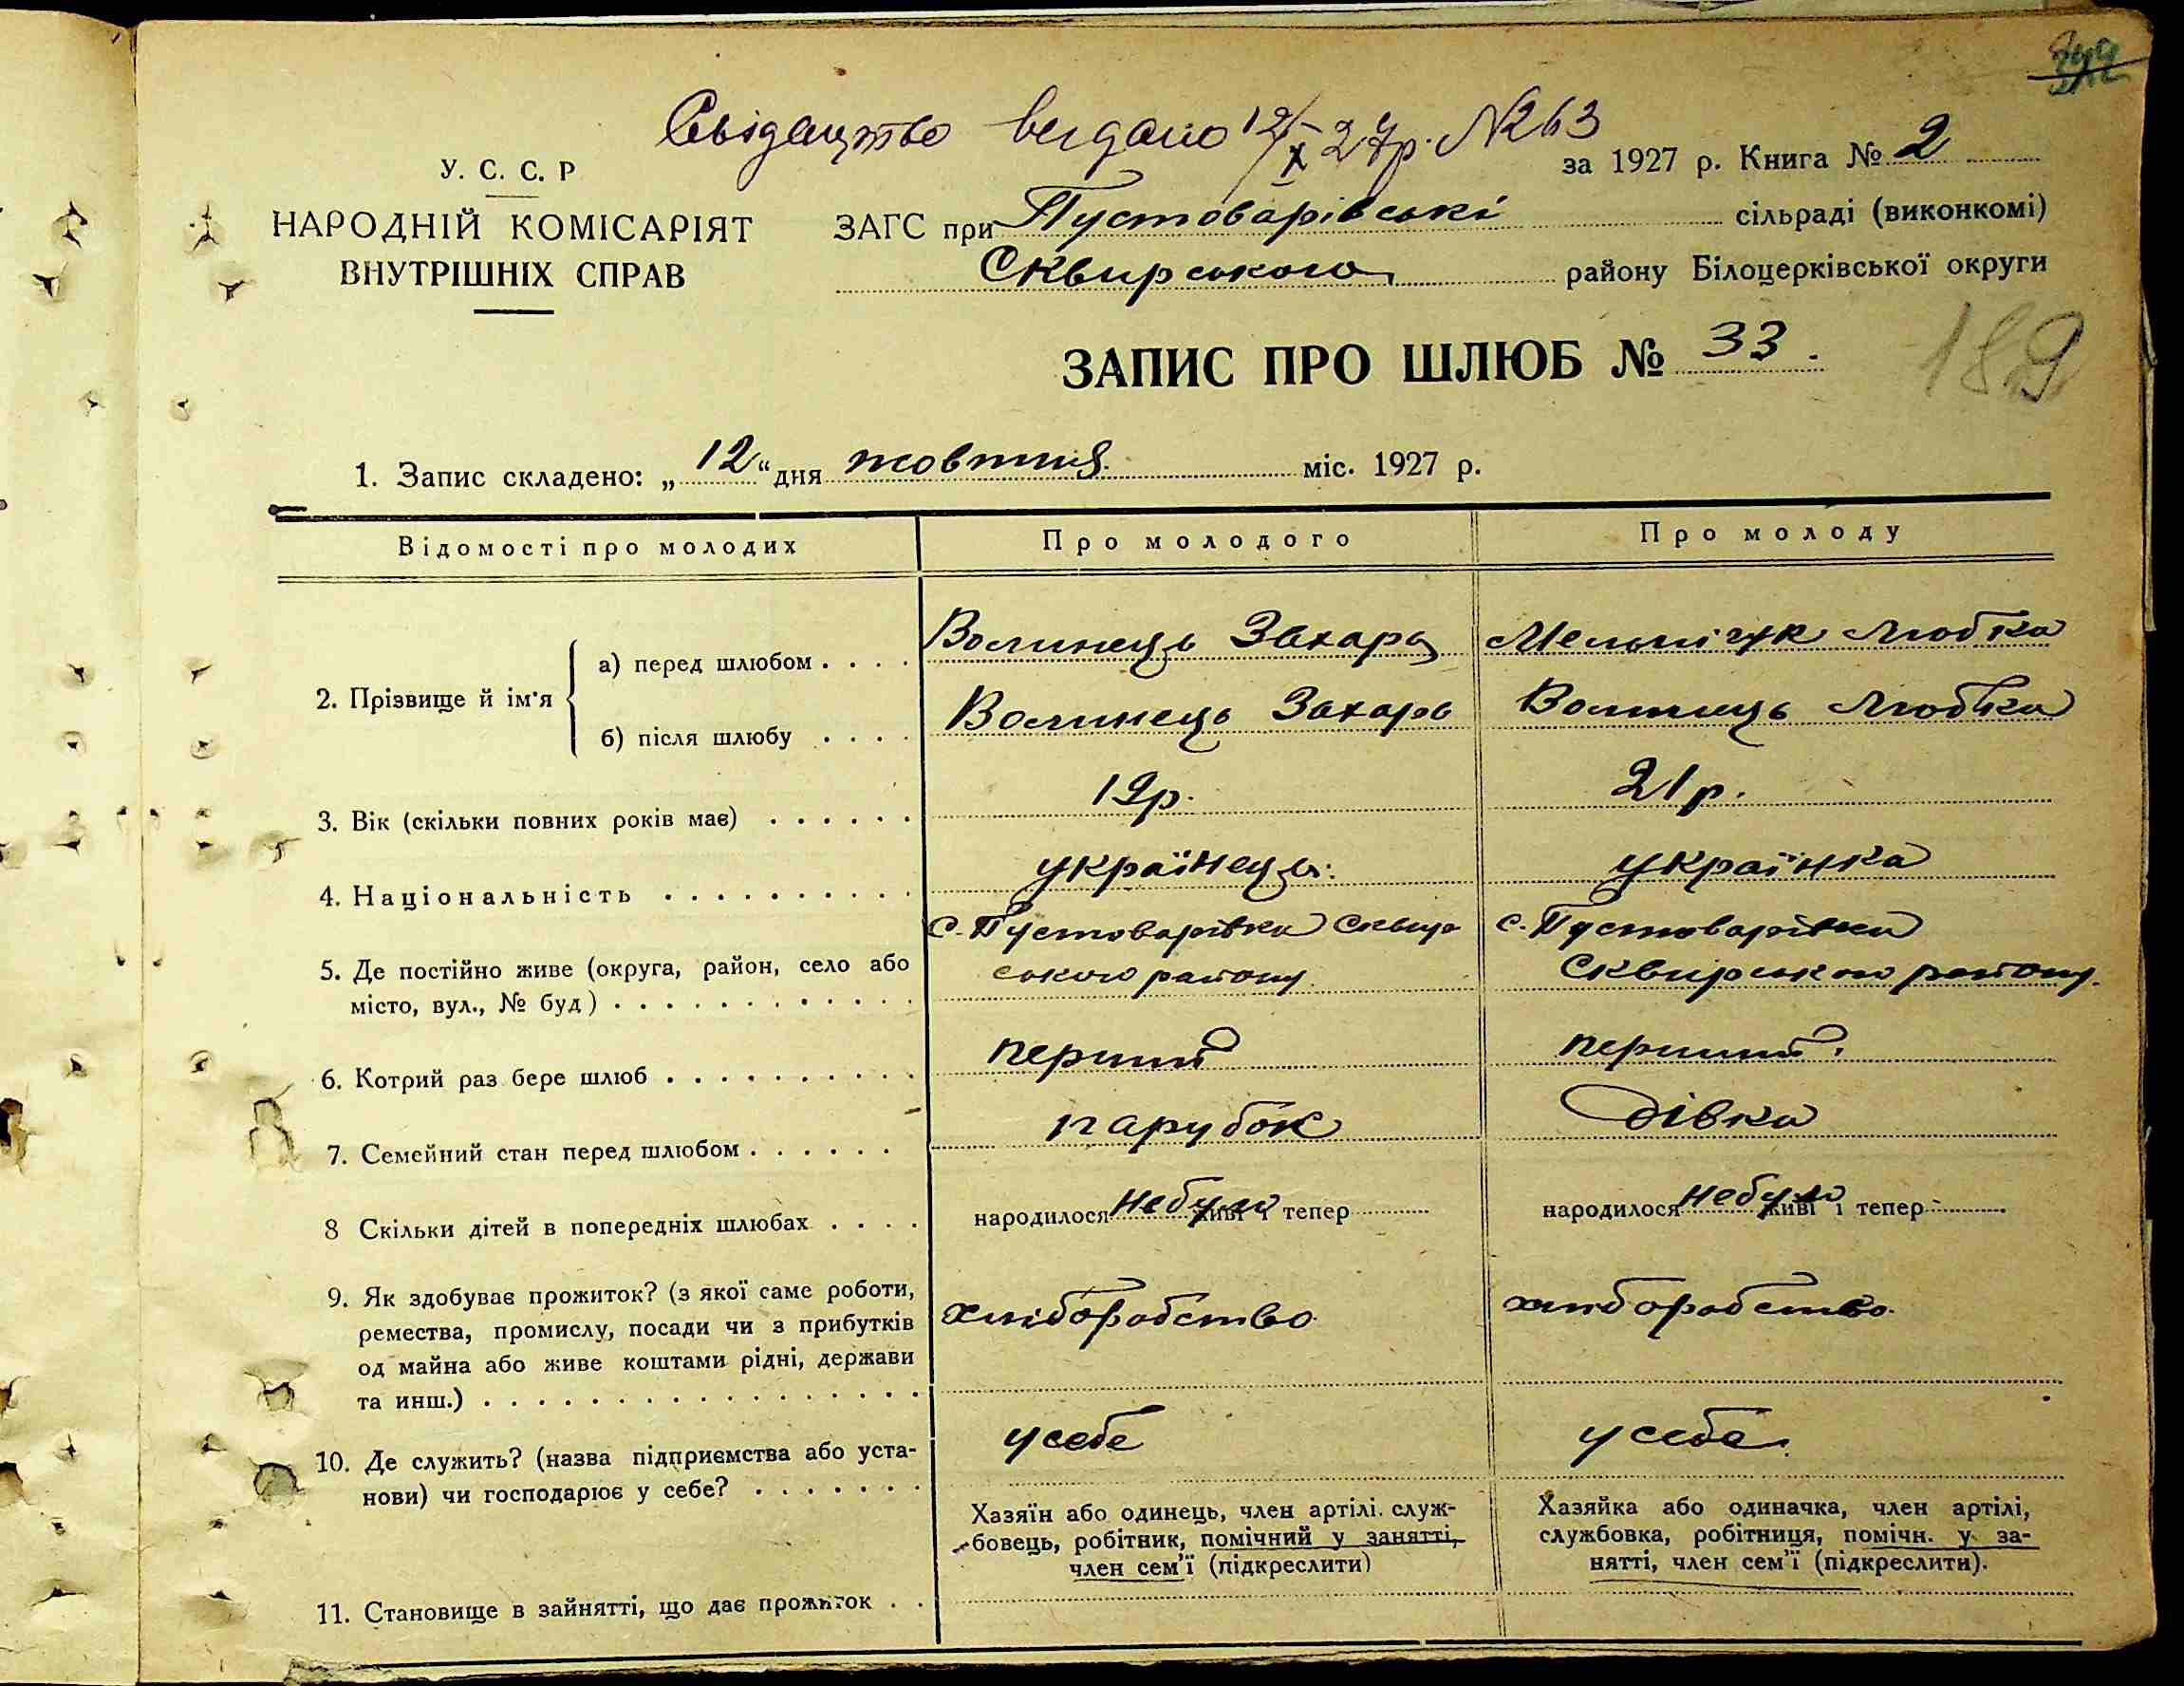 Свідоцтво видано 12/X 27р. №263
У. С. С. Р
за 1927 р. Книга № 2
НАРОДНІЙ КОМІСАРІЯТ
ВНУТРІШНІХ СПРАВ
ЗАГС при Пустоварівські сільраді (виконкомі)
Сквирського району Білоцерківської округи
ЗАПИС ПРО ШЛЮБ № 33.
189
1. Запис складено: „12“ дня жовтня міс. 1927 р.
Відомості про молодих Про молодого Про молоду
2. Прізвище й ім'я
а) перед шлюбом . . . . Волинець Захарь Мельнічук Любка
б) після шлюбу . . . . Волинець Захарь Волинець Любка
3. Вік (скільки повних років має) . . . . . . 19р. 21р.
4. Національність . . . . . . . . . . українець. українка
5. Де постійно живе (округа, район, село або с. Пустоварівка Сквир с. Пустоварівка
місто, вул., № буд) . . . . . . . . . . . . ського району. Сквирського району.
6. Котрий раз бере шлюб . . . . . . . . . . перший перший.
7. Семейний стан перед шлюбом . . . . . . парубок дівка
8 Скільки дітей в попередніх шлюбах . . . . народилося небуло живі і тепер народилося небуло живі і тепер -
9. Як здобуває прожиток? (з якої саме роботи, хліборобство хліборобство.
ремества, промислу, посади чи з прибутків
од майна або живе коштами рідні, держави
та инш.) . . . . . . . . . . . . . . . . .
10. Де служить? (назва підприємства або уста- усебе усебе.
нови) чи господарює у себе? . . . . . . .
Хазяїн або одинець, член артілі. служ- Хазяйка або одиначка, член артілі,
бовець, робітник, помічний у занятті, службовка, робітниця, помічн. у за-
член сем'ї (підкреслити) нятті, член сем'ї (підкреслити).
11. Становище в зайнятті, що дає прожиток . .